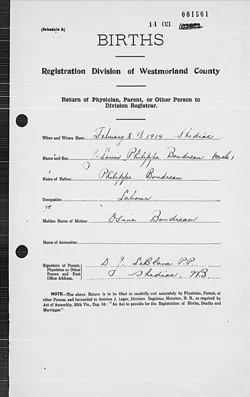 001561
14 03
(Schedule A)
BIRTHS
Registration Division of Westmorland County
Return of Physician, Parent, or Other Person to
Division Registrar.
When and Where Born February 8 1919 Shediac
Name and Sex Louis Philippe Boudreau (Male)
Name of Father Philippe Boudreau
Occupation Labour
Maiden Name of Mother Boudreau
Name of Accoucheur
Signature of Parent, Physician or Other Person and Post Office Address. D. J. LeBlanc P.P.
Shediac, NB
NOTE—The above Return is to be filled in carefully and accurately by Physician, parent, or
other Person, and forwarded to Antoine J. Leger, Division Registrar, Moncton, N. B., as required by
Act of Assembly, Cap. 54: "An Act to provide for the Registration of Births, Deaths and
Marriages."